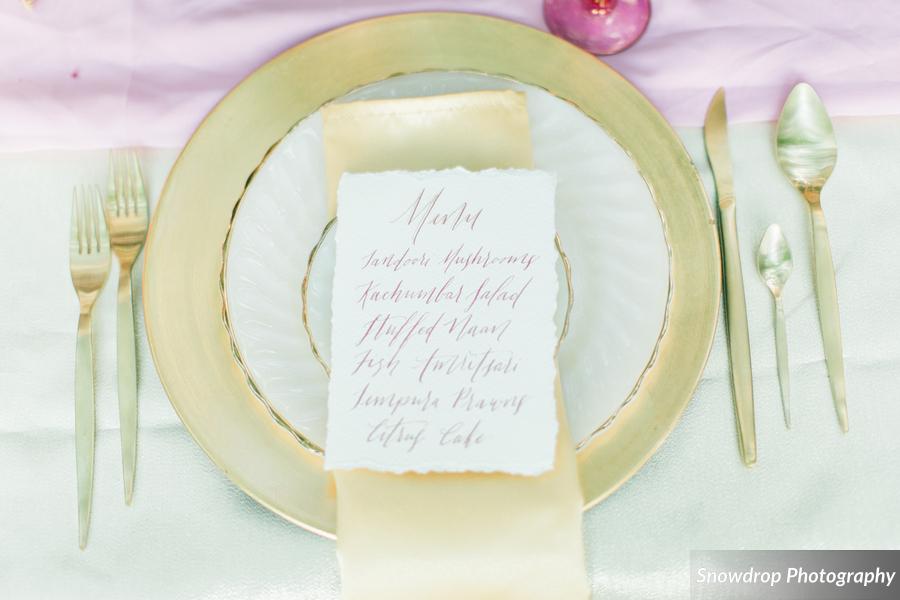 Menu
Tandoori Mushrooms
Kachumbar Salad
Stuffed Naan
Fish Amritsari
Tempura Prawns
Citrus Cake
Snowdrop Photography